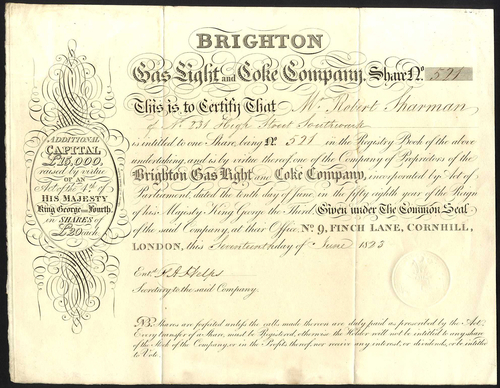 BRIGHTON
Gas Light and Coke Company. Share No. 521
This is to Certify That Mr Robert Sharman
of No 231 High Street Southwark
is intitled to one Share, being No. 521 in the Registry Book of the above
undertaking, and is by virtue thereof, one of the Company of Proprietors of the
Brighton Gas Light and Coke Company, incorporated by Act of
Parliament, dated the tenth day of June, in the fifty eighth year of the Reign
of his Majesty King George the Third, Given under The Common Seal
of the said Company, at their Office No. 9, FINCH LANE, CORNHILL,
LONDON, this Seventeenth day of June 1823
Entd.
Secretary to the said Company.
NB. Shares are forfeited unless the calls made thereon are duly paid as prescribed by the Act;
Every transfer of a Share, must be Registered, otherwise the Holder will not be entitled to any share
of the Stock of the Company, or in the Profits thereof, nor receive any interest, or dividends, or be intitled
to Vote.
ADDITIONAL
CAPITAL
£15,000,
raised by virtue
OF AN
Act of the 1st of
HIS MAJESTY
King George the Fourth,
in SHARES of
£20 each